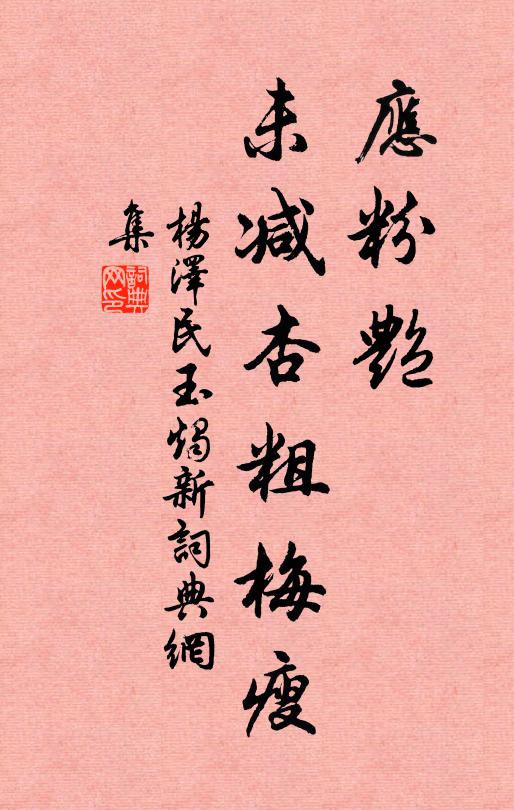 應粉艷
未減杏粗梅瘦
楊澤民玉燭新詞典網
集
詞典網印